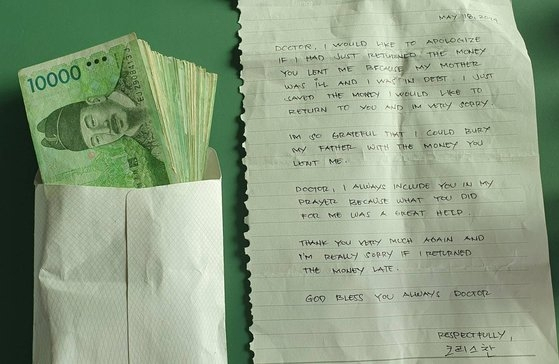 10000
MAY 18, 2019
DOCTOR, I WOULD LIKE TO APOLOGIZE
IF I HAD JUST RETURNED THE MONEY
YOU LENT ME BECAUSE MY MOTHER
WAS ILL AND I WAS IN DEBT. I JUST
SAVED THE MONEY I WOULD LIKE TO
RETURN TO YOU AND IM VERY SORRY
IM SO GRATEFUL THAT I COULD BURY
MY FATHER WITH THE MONEY YOU
LENT ME.
DOCTOR, I ALWAYS INCLUDE YOU IN MY
PRAYER BECAUSE WHAT YOU DID
FOR ME WAS A GREAT HELP.
THANK YOU VERY MUCH AGAIN AND
I'M REALLY SORRY IF I RETURNED
THE MONEY LATE.
GOD BLESS YOU ALWAYS DOCTOR
RESPECTFULLY,